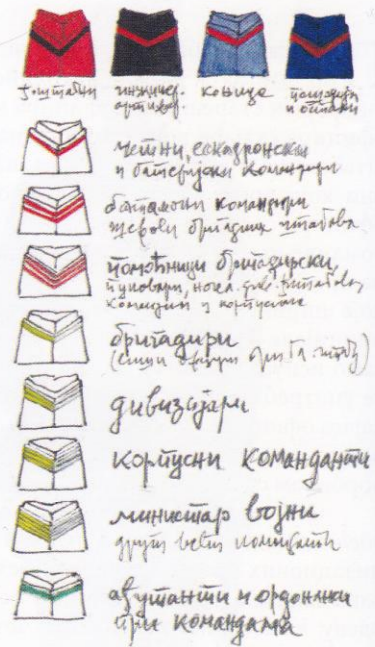 г. штабни
инжињер.
артиљер.
коњица
пешадија
и остали
четни, ескадронски
и батеријски командири
батаљони командири
шефови бригадних штабова
помоћници бригадирски,
командни и корпусни
бригадири
дивизијари
корпусни команданти
министар војни
други већи команданти
ађутанти и ордонанси
при командама